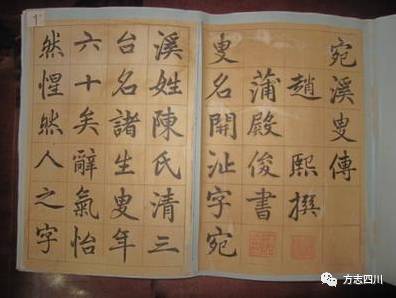 宛溪叟傳
趙熙撰
蒲殿俊書
叟名開沚字宛
溪姓陳氏清三
台名諸生叟年
六十矣辭氣怡
然惺然人之字
方志四川